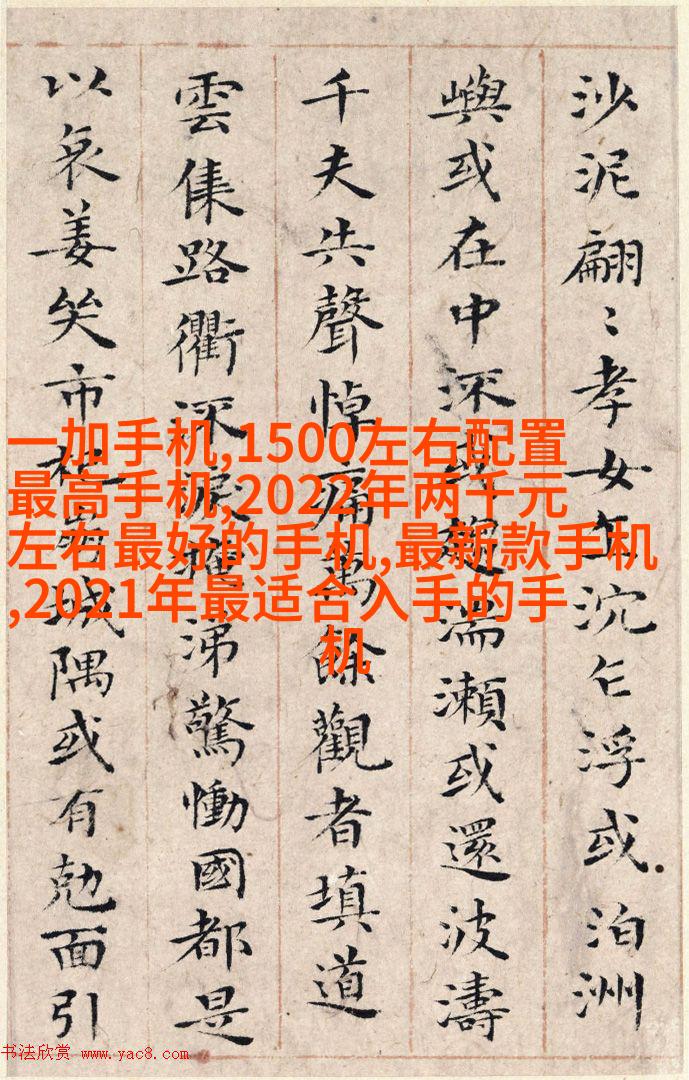 沙泥翩〻孝女乍沉乍浮或泊洲
嶼或在中深或趨湍瀬或還波濤
千夫共聲悼痛萬餘觀者填道
雲集路衢流淚掩涕驚慟國都是
以哀姜哭市杞崩城隅或有尅面引
一加手机,1500左右配置
最高手机,2022年两千元
左右最好的手机,最新款手机
,2021年最适合入手的手
机
书法欣赏 www.yac8.com